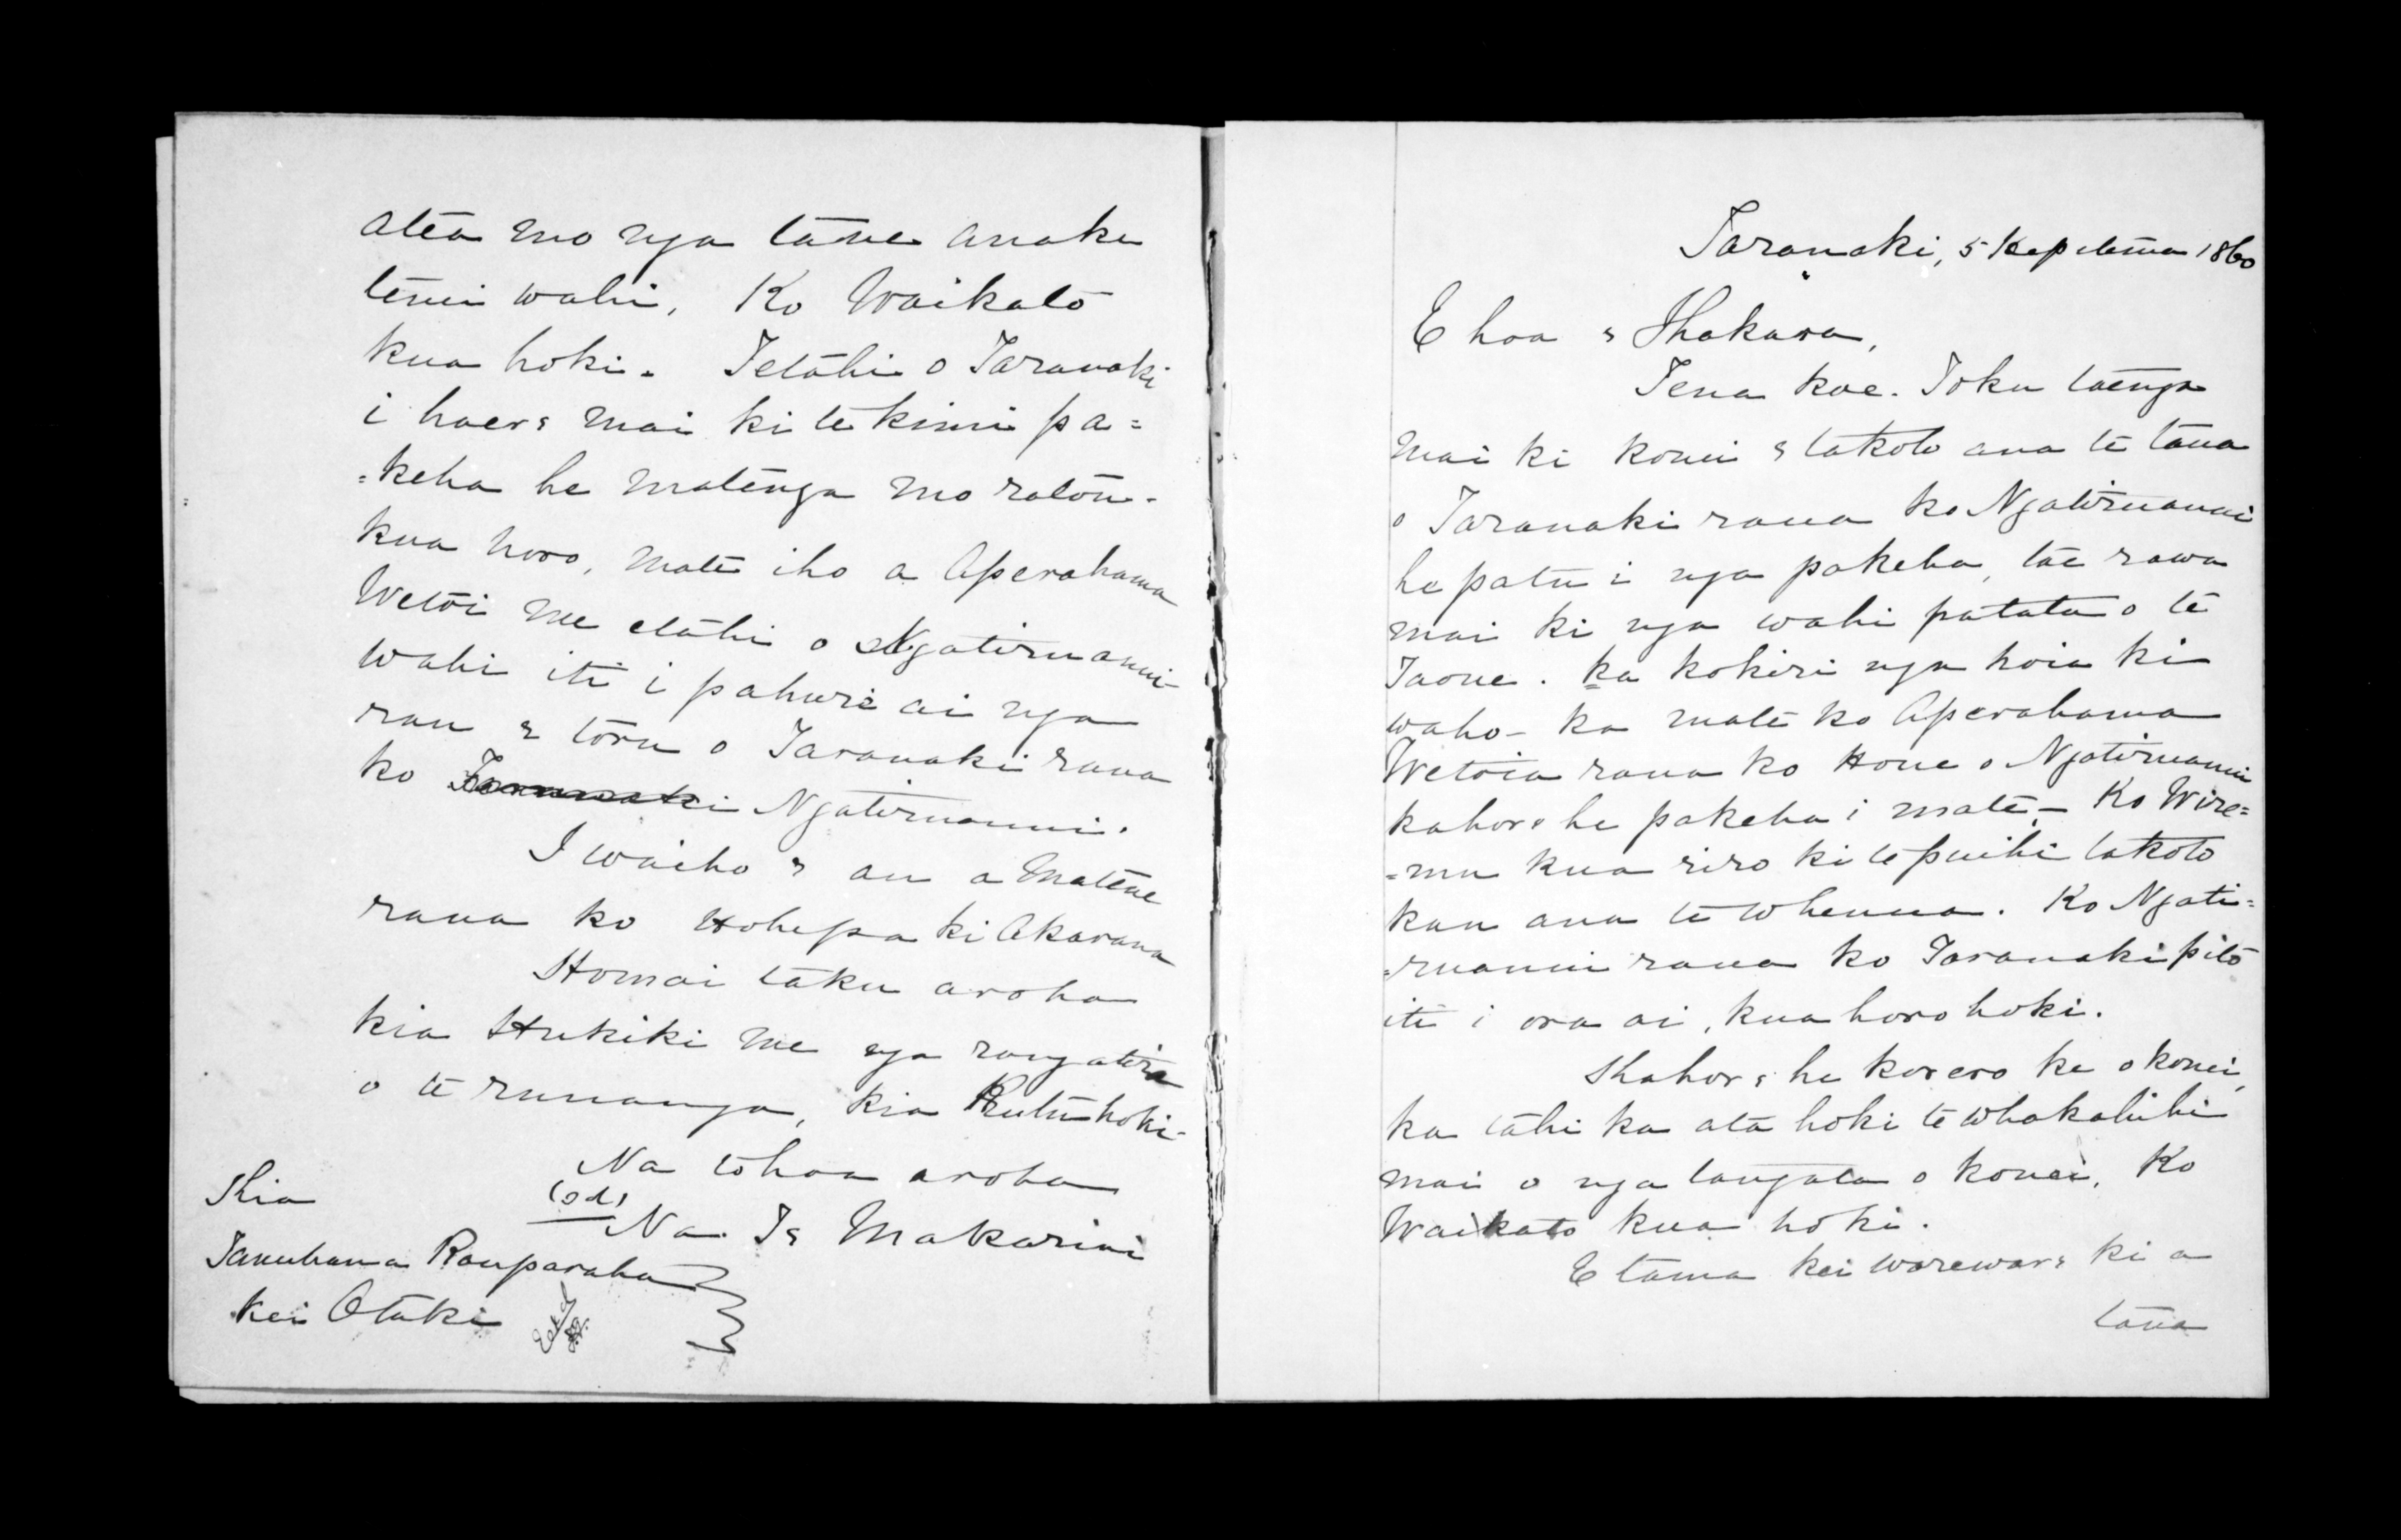 atea mo nga tane anake
tenei wahi. Ko Waikato
kua hoki. Tetahi o Taranaki
i haere mai ki te kimi pa=
=keha he matenga mo ratou-
kua horo, mate iho a Aperahama
Wetoi me etahi o Ngatiruanui-
wahi iti i pahure ai nga
rau e toru o Taranaki raua
ko Taranaki Ngatiruanui.
I waiho e au a Matene
raua ko Hohepa ki Akarana
Homai taku aroha
kia Hukiki me nga rangatira
o te runanga, kia Rutu hoki-
Na to hoa aroha
(sd)
Na Te Makarini
Kia
Tamihana Rauparaha
kei Otaki
Taranaki, 5 Kepetema 1860
E hoa e Ihakara,
Tena koe. Toku taenga
mai ki konei e takoto ana te taua
o Taranaki raua ko Ngatiruanui
he patu i nga pakeha, tae rawa
mai ki nga wahi patata o te
Taone. ka kokiri nga hoia ki
waho- ka mate ko Aperahama
Wetoia raua ko Hone o Ngatiruanui
kahore he pakeha i mate- Ko Wire=
=mu kua riro ki te puihi takoto
kau ana te whenua. Ko Ngati=
=ruanui raua ko Taranaki pito
iti i ora ai, kua horo hoki.
Kahore he korero ke o konei,
ka tahi ka ata hoki te whakahihi
mai o nga tangata o konei. Ko
Waikato kua hoki.
E tama kei wareware ki a
taua